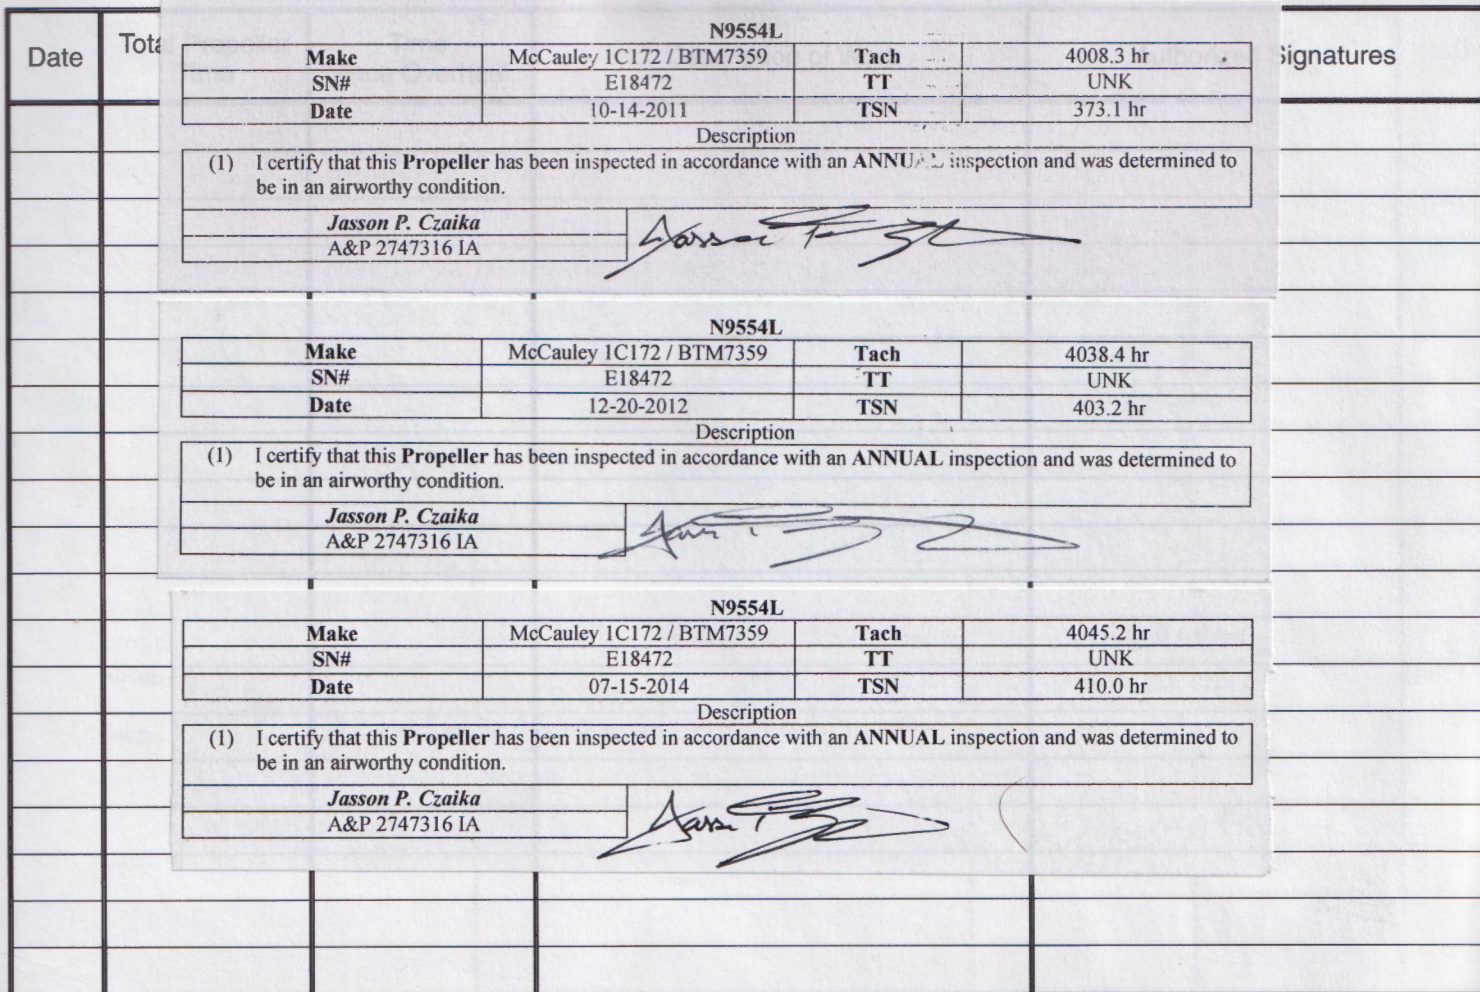 Date
Total Propeller
Time
Time
Signatures
N9554L
Make McCauley 1C172 / BTM7359 Tach 4008.3 hr
SN# E18472 TT UNK
Date 10-14-2011 TSN 373.1 hr
Description
(1) I certify that this Propeller has been inspected in accordance with an ANNUAL inspection and was determined to
be in an airworthy condition.
Jasson P. Czaika
A&P 2747316 IA
N9554L
Make McCauley 1C172 / BTM7359 Tach 4038.4 hr
SN# E18472 TT UNK
Date 12-20-2012 TSN 403.2 hr
Description
(1) I certify that this Propeller has been inspected in accordance with an ANNUAL inspection and was determined to
be in an airworthy condition.
Jasson P. Czaika
A&P 2747316 IA
N9554L
Make McCauley 1C172 / BTM7359 Tach 4045.2 hr
SN# E18472 TT UNK
Date 07-15-2014 TSN 410.0 hr
Description
(1) I certify that this Propeller has been inspected in accordance with an ANNUAL inspection and was determined to
be in an airworthy condition.
Jasson P. Czaika
A&P 2747316 IA